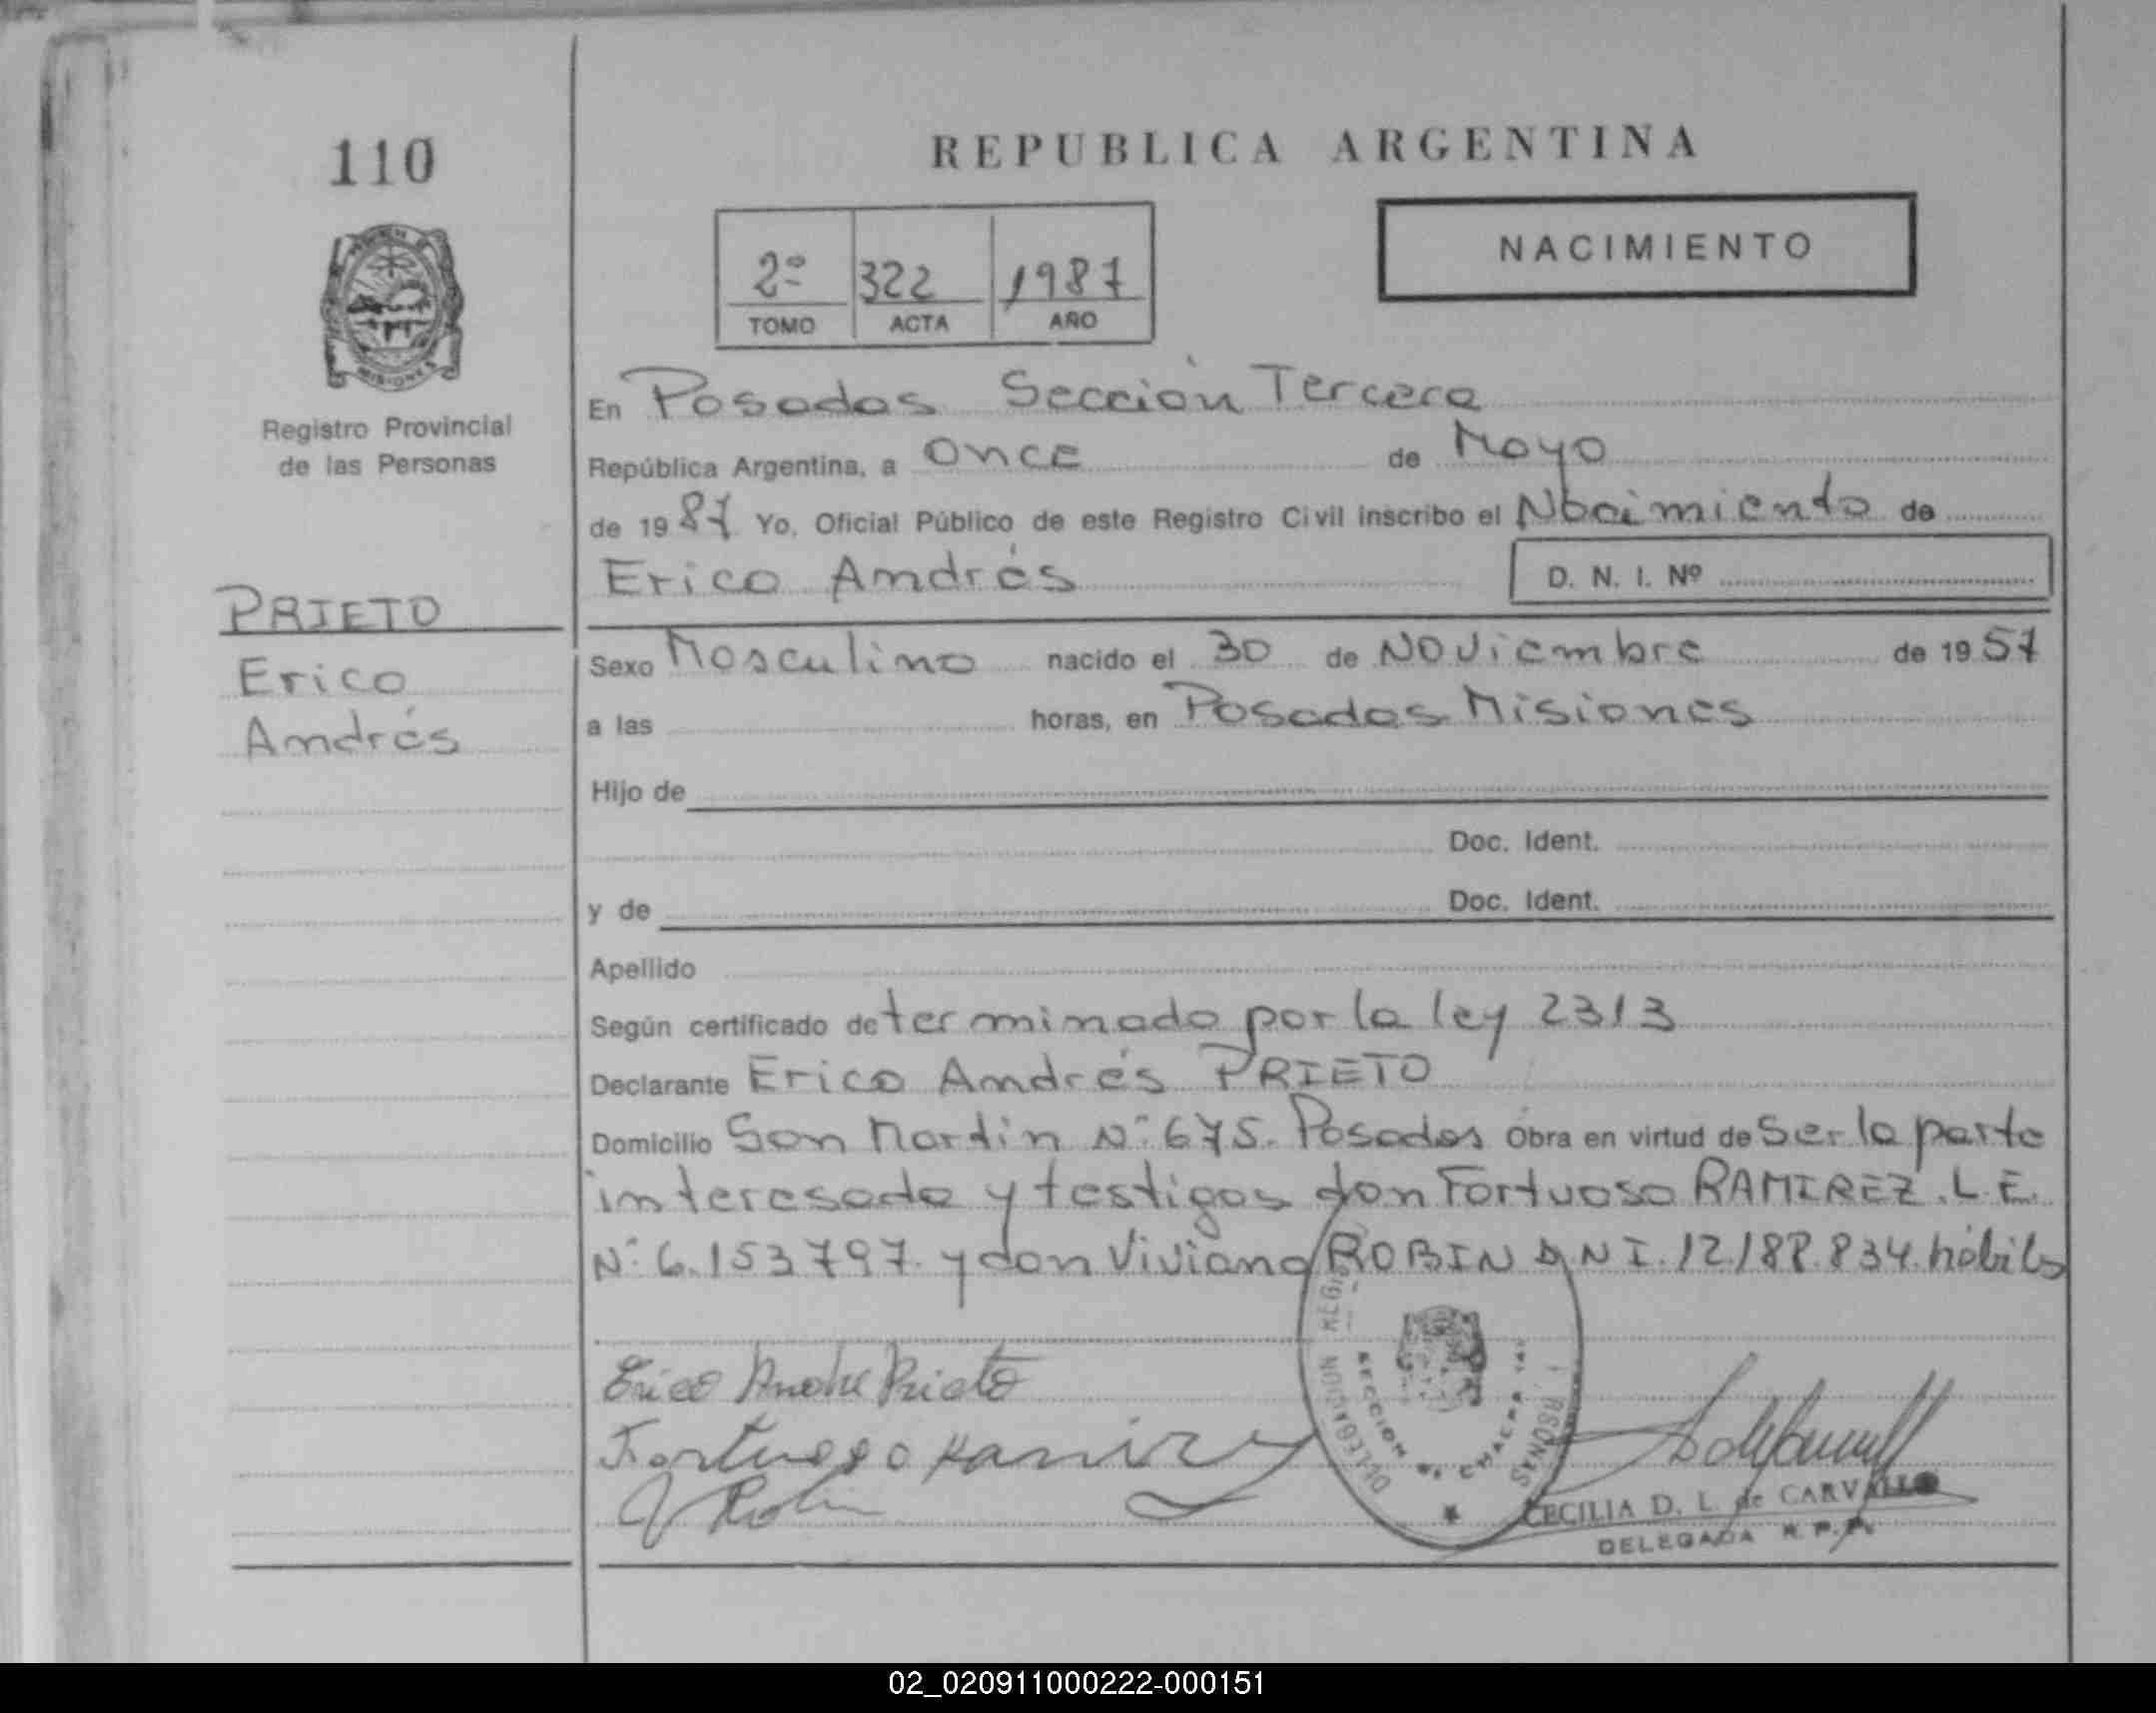 110
REPUBLICA ARGENTINA
NACIMIENTO
2º 322 1987
TOMO ACTA AÑO
MISIONES
Registro Provincial
de las Personas
En Posadas Sección Tercera
República Argentina, a Once de Mayo
de 1987 Yo, Oficial Público de este Registro Civil inscribo el Nacimiento de
Erico Andrés D. N. I. Nº
PRIETO
Erico
Andrés
Sexo Masculino nacido el 30 de Noviembre de 1957
a las horas, en Posadas Misiones
Hijo de
Doc. Ident.
y de Doc. Ident.
Apellido
Según certificado determinado por la ley 2313
Declarante Erico Andrés PRIETO
Domicilio San Martín Nº 675. Posadas Obra en virtud de ser la parte
interesada y testigos don Fortuoso RAMIREZ. L.E.
Nº 6.153797. y don Viviano ROBIN D.N.I. 12.188.834. hábiles
Erico Andre Prieto
Fortuoso Ramirez
Robin
SECCION
CHACRA
CECILIA D. L. de CARVALLO
DELEGADA R. P. P.
02_020911000222-000151